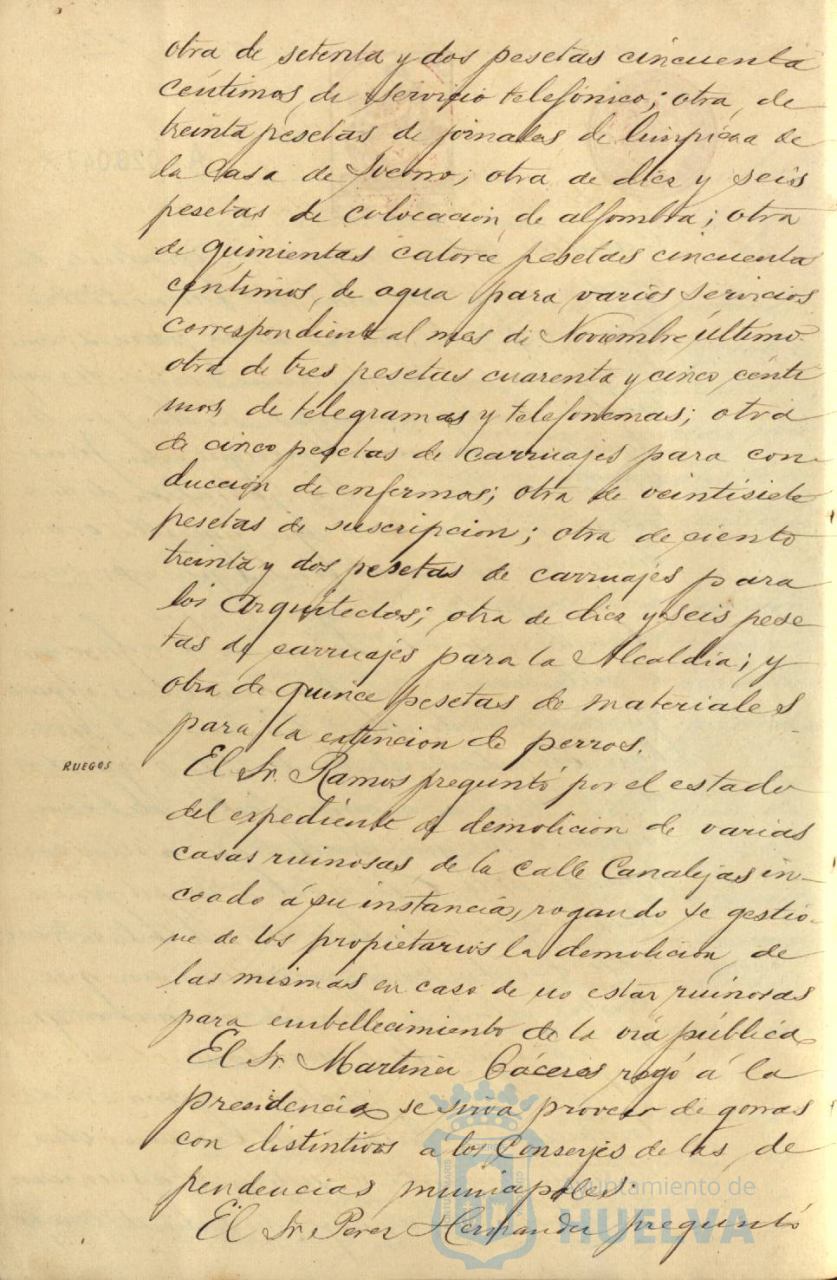 otra de setenta y dos pesetas cincuenta
céntimos, de servicio telefónico; otra, de
treinta pesetas de jornales de limpieza de
la Casa de Socorro; otra de diez y seis
pesetas de colocación de alfombra; otra
de quinientas catorce pesetas cincuenta
céntimos, de agua para varios servicios
correspondiente al mes de Noviembre último.
otra de tres pesetas cuarenta y cinco cénti
mos, de telegramas y telefonemas; otra
de cinco pesetas de carruajes para con-
ducción de enfermos; otra de veintisiete
pesetas de suscripcion; otra de ciento
treinta y dos pesetas de carruajes para
los Arquitectos; otra de diez y seis pese
tas de carruajes para la Alcaldía; y
otra de quince pesetas de materiales
para la extincion de perros.
RUEGOS
El Sr. Ramos preguntó por el estado
del expediente de demolicion de varias
casas ruinosas de la calle Canalejas in-
coado á su instancia, rogando se gestio-
ne de los propietarios la demolición de
las mismas en caso de no estar ruinosas
para embellecimiento de la via pública
El Sr Martinez Cáceres rogó á la
presidencia se sirva proveer de gorras
con distintivos a los Conserjes de las de
pendencias municipales.
El Sr. Perez Hernandez preguntó
Ayuntamiento de
HUELVA